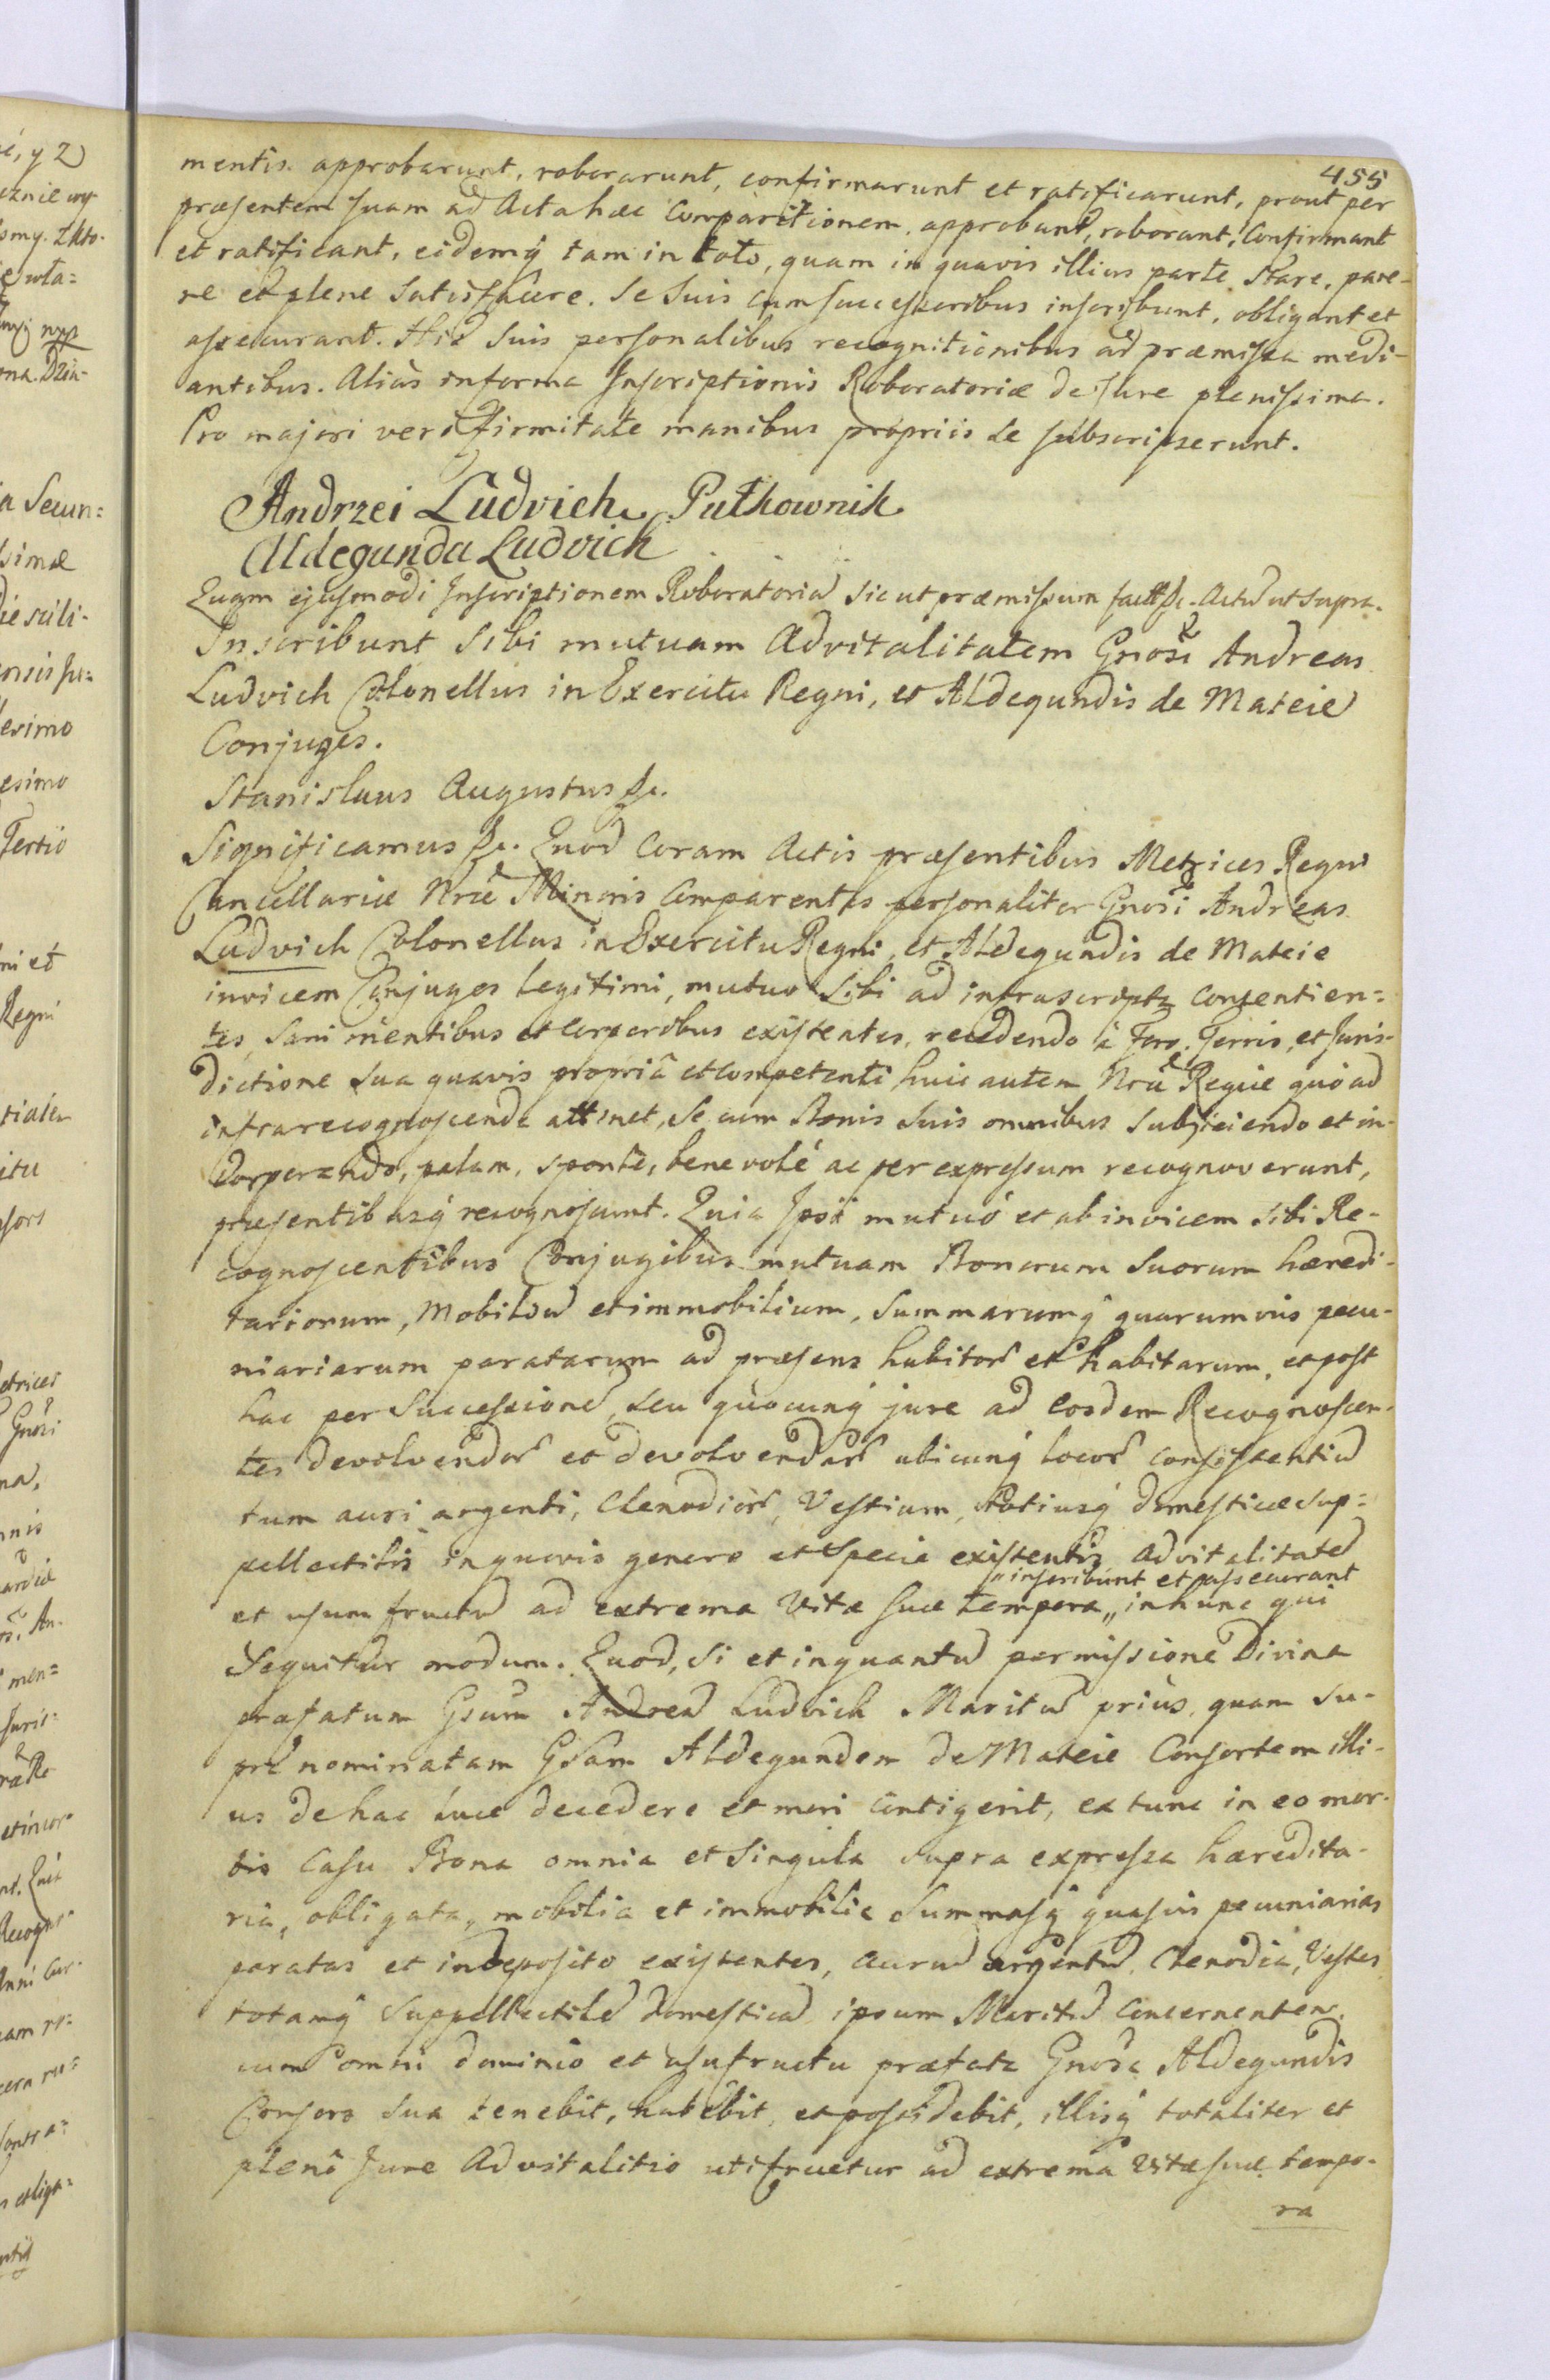 455
mentis approbarunt, roborarunt, confirmarunt et ratificarunt, prout per
præsentem suam ad Acta hæc Comparitionem, approbant, roborant, Confirmant
et ratificant, eidemq́ tam in toto, quam in quavis illius parte stare, pare-
re et plene Satisfacere. Se Suis cum successoribus inscribunt, obligant et
assecurant. His Suis personalibus recognitionibus ad præmissa medi-
antibus. Alias in forma Inscriptionis Roboratoriæ de Jure plenissima.
Pro majori vero firmitate manibus propriis se subscripserunt.
Andrzei Ludvich Pułkownik
Aldegunda Ludvich
Quam ejusmodi Inscriptionem Roboratoriã sic ut præmissum Actũ ut supra.
Inscribunt Sibi mutuam Advitalitatem Gnosi Andreas
Ludvich Colonellus in Exercitu Regni, et Aldegundis de Mateie
Conjuges.
Stanislaus Augustus &c.
Significamus &c. Quod Coram Actis præsentibus Metrices Regni
Cancellariæ Nræ Minoris Comparentes personaliter Gnosi Andreas
Ludvich Colonellus in Exercitu Regni, et Aldegundis de Mateie
invicem Conjuges legitimi, mutuo Sibi ad infrascripta Consentien=
tes, Sani mentibus et Corporibus existentes, recedendo à Foro, Terris, et Juris-
dictione Sua quavis propriâ et Competenti huic autem Nræ Regiæ quo ad
infrarecognoscenda attinet, Se cum Bonis Suis omnibus Subjiciendo et in-
Corporando, palam, sponte, benevolé ac per expressum recognoverunt,
præsentibusq́ recognoscunt. Quia Ipsi mutuó et ab invicem Sibi Re-
cognoscentibus Conjugibus mutuam Bonorum Suorum hæredi-
tariorum, Mobiliũ et immobilium, Summarumq́ quarumvis pecu-
niariarum paratarum ad præsens habitor̃ et habitarum, et post
hac per Successionẽ, seu quocunq́ jure ad eosdem Recognoscen-
tes devolvendor̃ et devolvendar̃ ubicunq́ locor̃ consistentiũ
tum auri argenti, Clenodiõr̃, Vestium, totiusq́ domesticæ Sup=
pellectilis in quovis genere et Specie existentis Advitalitatẽ
inscribunt et assecurant
et usum fructũ ad extrema Vitæ Suæ tempora,, in hunc qui
Sequitur modum. Quod, Si et inquantũ permissione Divina
præfatum Gsum Andreã Ludvich Maritũ priùs, quam Su-
prã nominatam Gsam Aldegundem de Mateie Consortem illi-
us de hac luce decedere et mori Contigerit, ex tunc in eo mor-
tis Casu Bona omnia et Singula Supra expressa hæredita-
ria, obligata, mobilia et immobilia Summasq́ quasvis pecuniarias
paratas et in deposito existentes, aurũ argentũ, Clenodia, Vestes
totamq́ Suppellectilẽ domesticã ipsum Maritũ Concernentem,
cum omni dominio et usufructu præfata Gnosa Aldegundis
Consors Sua tenebit, habebit, et possidebit, illisq́ totaliter et
plenô Jure Advitalitio utifruetur ad extrema Vitæ suæ tempo-
ra